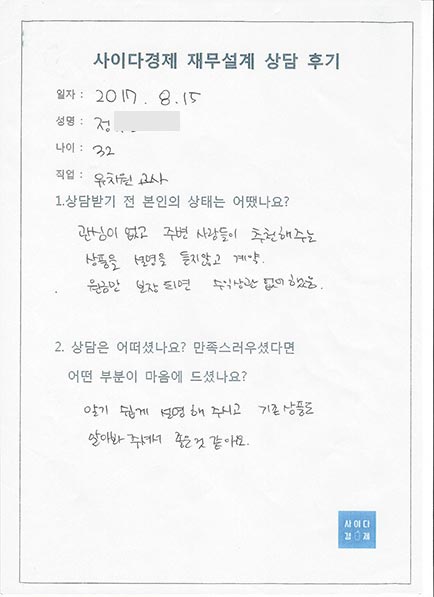 사이다경제 재무설계 상담 후기
일자 : 2017. 8. 15
성명 : 정
나이 : 32
직업 : 유치원 교사
1.상담받기 전 본인의 상태는 어땠나요?
관심이 없고 주변 사람들이 추천해주는
상품을 설명을 듣지않고 계약.
원금만 보장 되면 수익상관 없이 했음.
2. 상담은 어떠셨나요? 만족스러우셨다면
어떤 부분이 마음에 드셨나요?
알기 쉽게 설명해 주시고 기존상품도
알아봐 주셔서 좋은것 같아요.
사이다
경제